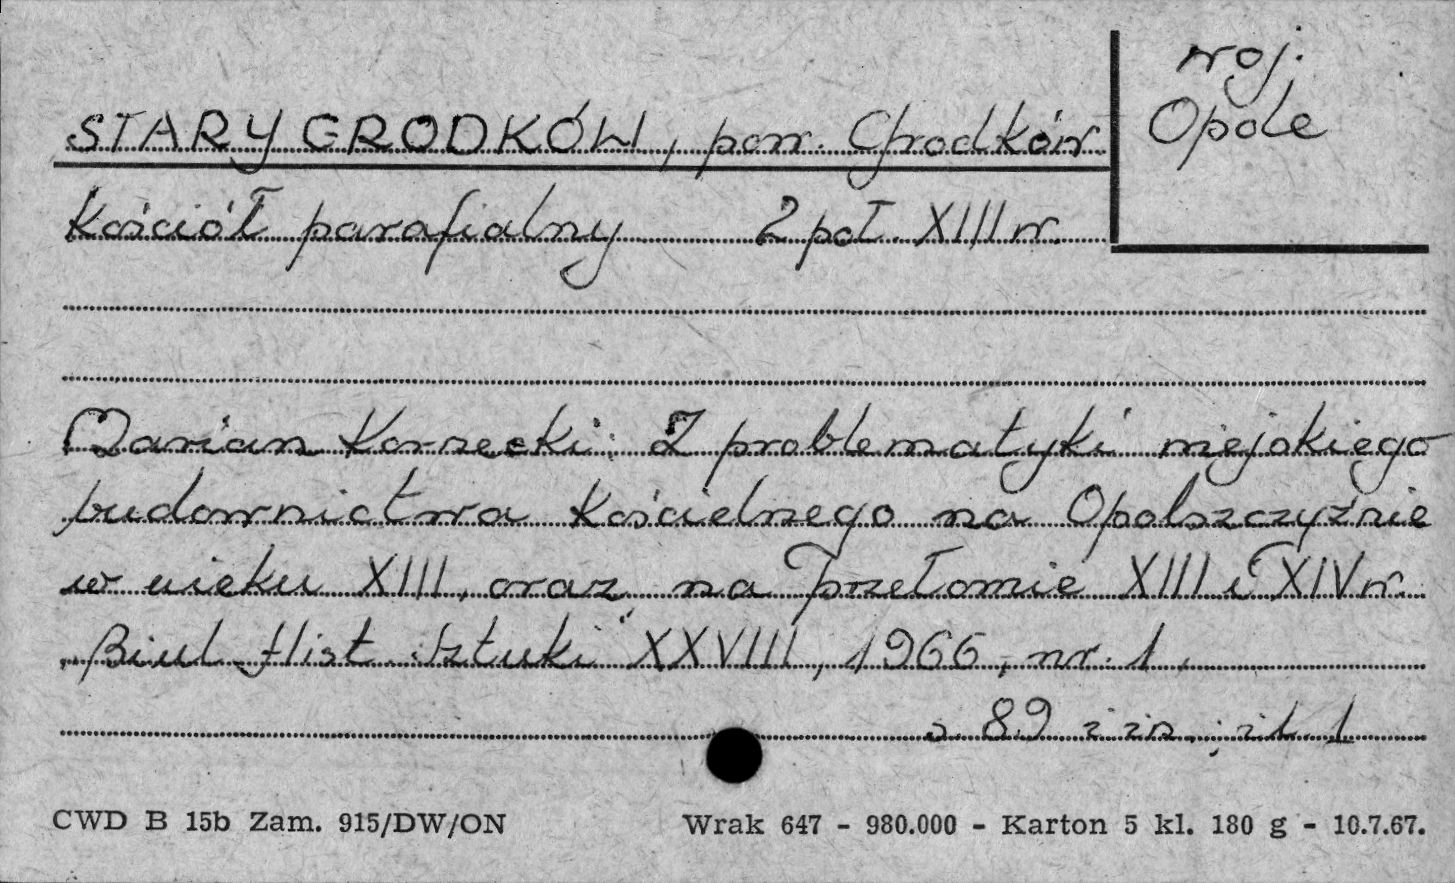 woj.
Opole
STARY GRODKÓW, pow. Grodków
Kościół parafialny 2 poł. XIII w.
Marian Kornecki: Z problematyki miejskiego
budownictwa kościelnego na Opolszczyźnie
w wieku XIII, oraz na przełomie XIII i XIV w.
"Biul. Hist. Sztuki" XXVIII, 1966, nr. 1,
s. 89 i in.; il. 1
CWD B 15b Zam. 915/DW/ON Wrak 647 - 980.000 - Karton 5 kl. 180 g - 10.7.67.